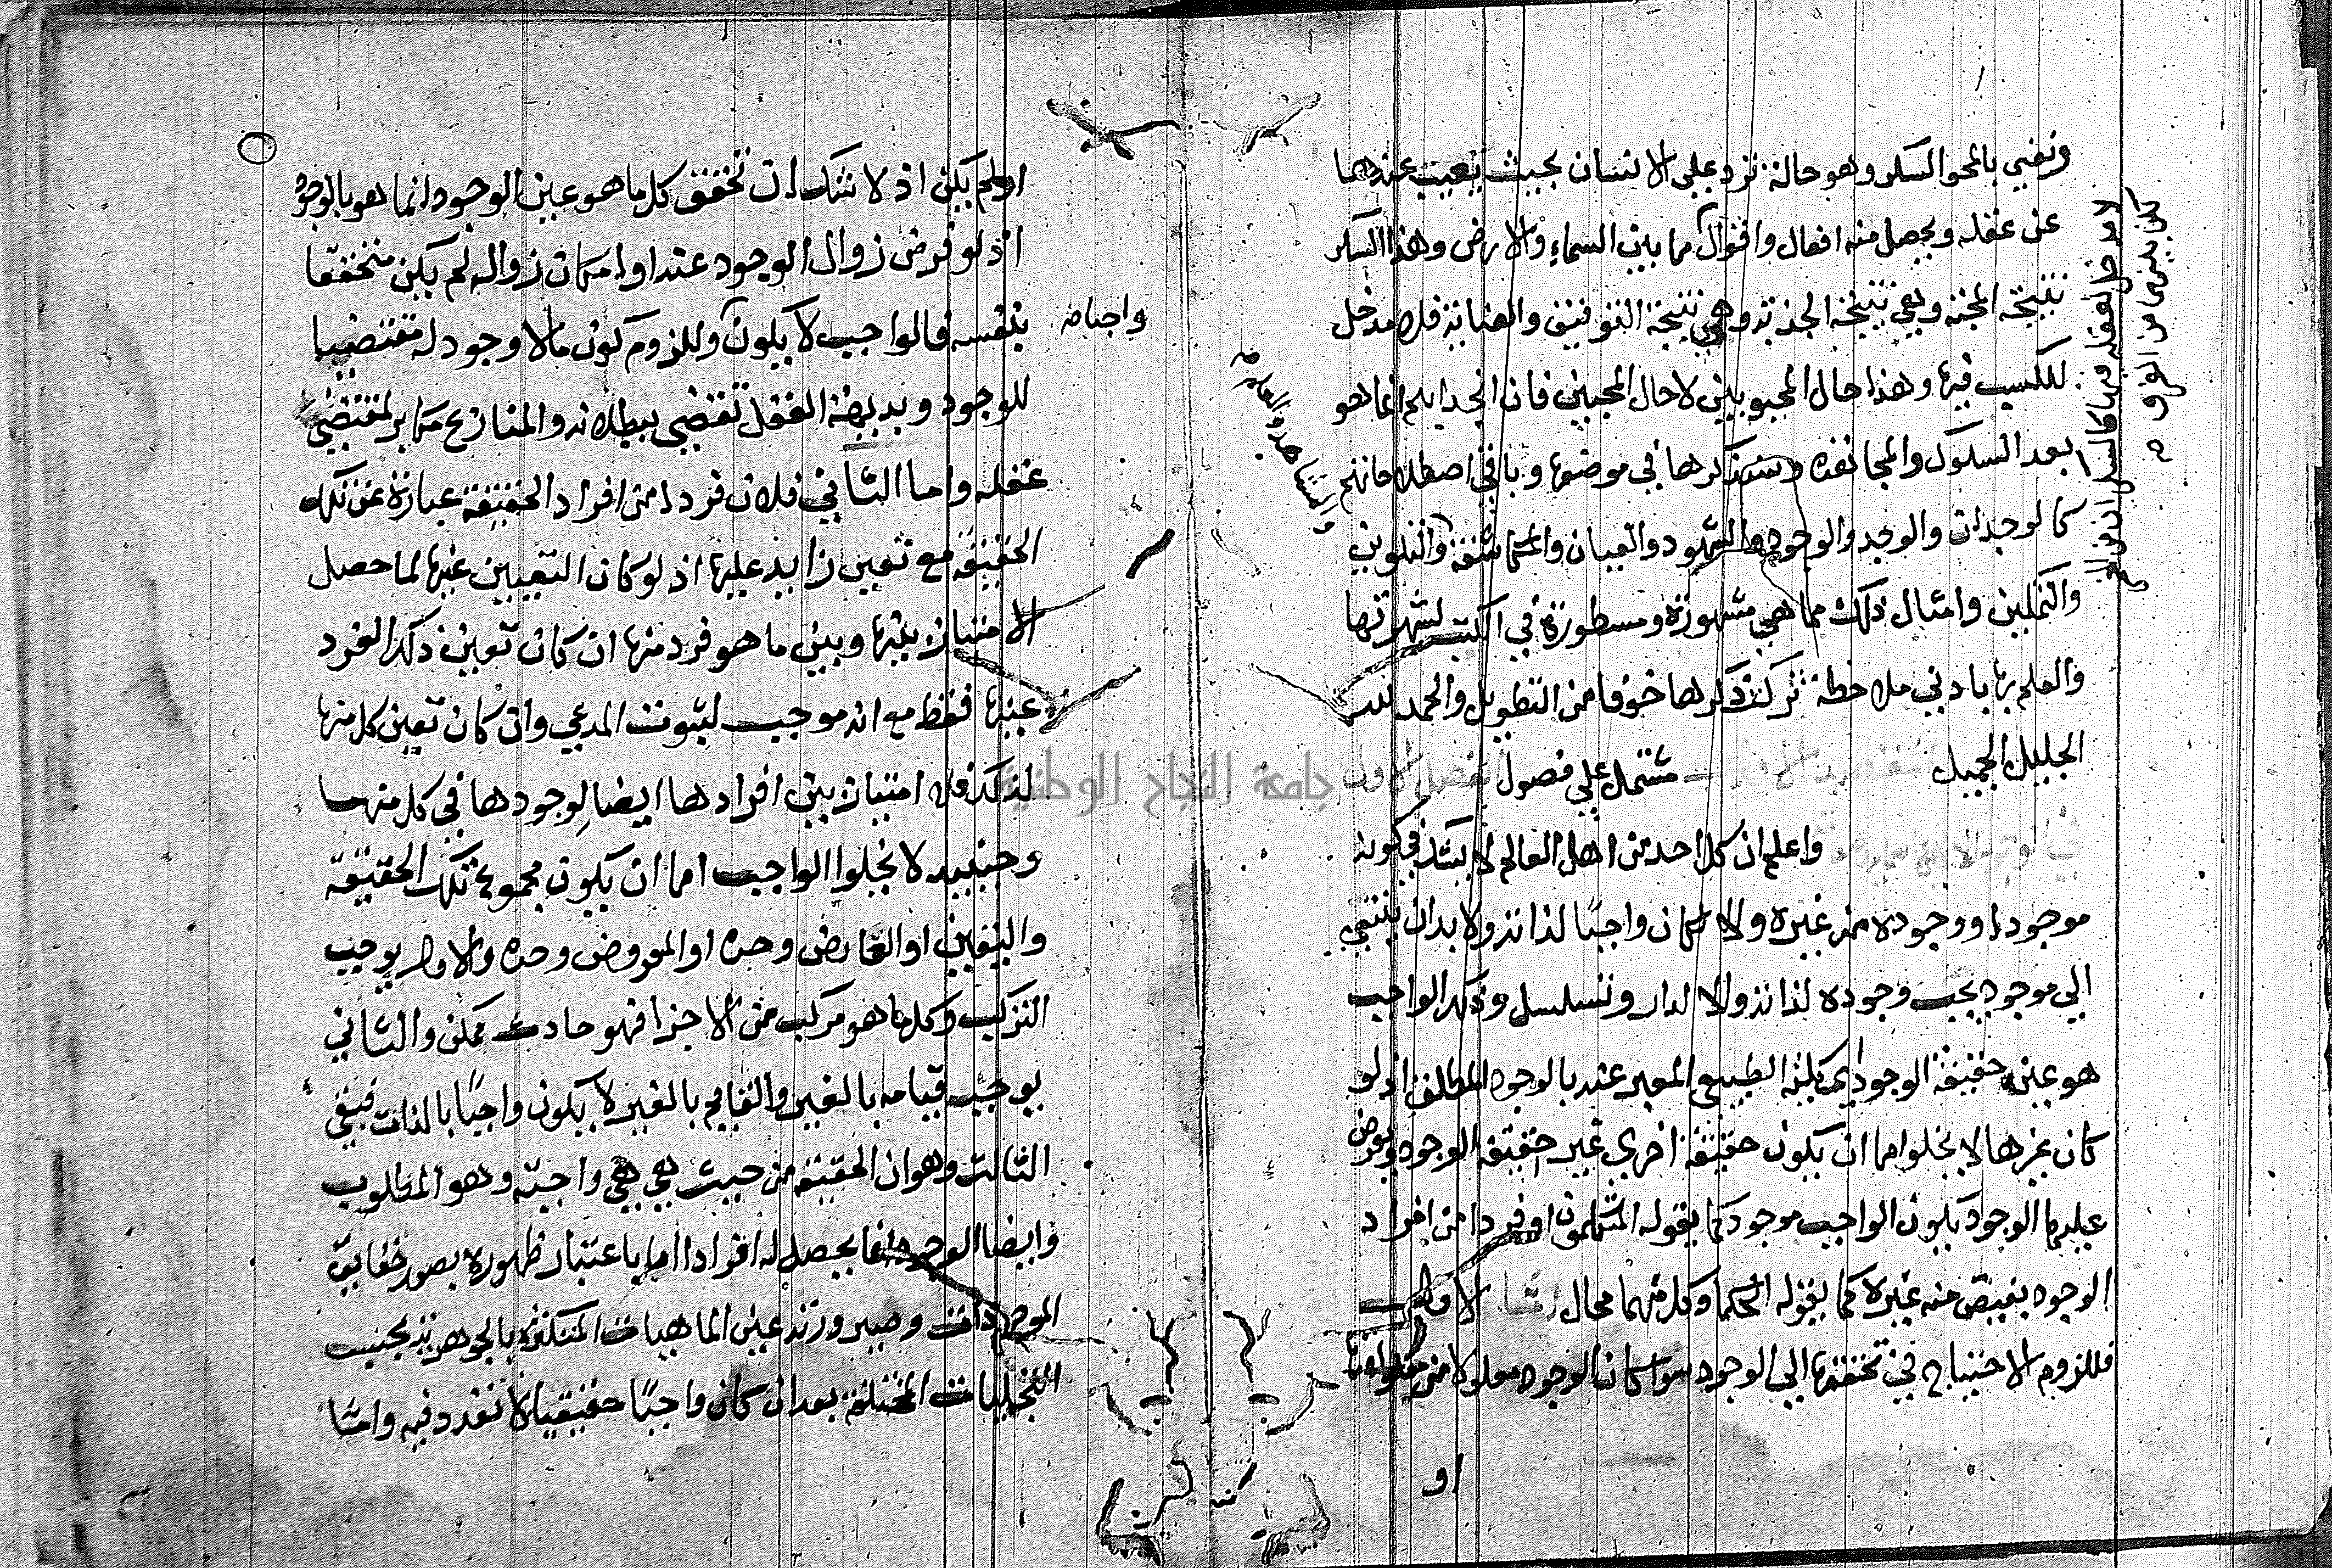 ونعني بالمحو السكر وهو حالة ترد على الانسان بحيث يغيب عندها
عن عقله ويحصل منه افعال واقوال مما بين السماء والارض وهذا السكر
نتيجة المحبة وهي نتيجة الجذبة وهي نتيجة التوفيق والعناية فلا مدخل
للكسب فيها وهذا حال المحبوبين لا حال المحبين فان انجذابهم انما هو
بعد السلوك والمجاهدة وسنذكرها في موضعها وباقي اصطلاحاتهم
كالوجدان والوجد والوجود والشهود والعيان والمكاشفة والتلوين
والتمكين وامثال ذلك مما هي مشهورة ومسطورة في الكتب لشهرتها
والعلم بها بادني ملاحظة تركت ذكرها خوفا من التطويل والحمد لله
الجليل الجميل مشتمل على فصول الفصل الاول
واعلم ان كل احد من اهل العالم لا يشك في كونه
موجودا ووجوده من غيره والا لكان واجبا لذاته ولا بد ان ينتهي
الي موجود يجب وجوده لذاته والا لدار وتسلسل وذلك الواجب
هو عين حقيقة الوجود اي الطبيعي المعبر عنه بالوجود المطلق اذ لو
كان غيرها لا يخلوا اما ان يكون حقيقة اخري غير حقيقة الوجود يعرض
عليها الوجود يكون الواجب موجود كما يقوله المتكلمون او فردا من افراد
الوجود يفيض منه غيره كما يقوله الحكما وكل منهما محال اما الاول
فللزوم الاحتياج في تحققها الي الوجود سوا كان الوجود معلولا من
او
لا مدخل للعقل فيها كالسكر
والمشاهدة العيانية
اولم يكن اذ لا شك ان تحقق كل ما هو عين الوجود انما هو بالوجود
اذ لو فرض زوال الوجود عنه او امكان زواله لم يكن متحققا
بنفسه فالواجب لا يكون وللزوم كون ما لا وجود له مقتضيا
واجبا صح
للوجود وبديهة العقل تقضي ببطلانه والمنازع مكابر لمقتضي
عقله واما الثاني فلان فردا من افراد الحقيقة عبارة عن تلك
الحقيقة مع تعين زايد عليها اذ لو كان التعيين عينها لما حصل
الامتياز بينها وبين ما هو فرد منها ان كان تعين ذلك الفرد
عينها فقط مع انه موجب لثبوت المدعي وان كان تعين كل منها
لذلك فلا امتياز بين افرادها ايضا لوجودها في كل منهما
وحينيد لا يخلوا الواجب اما ان يكون مجموع تلك الحقيقة
والتعين او العارض وحده او المعروض وحده والاول يوجب
التركيب وكل ما هو مركب من الاجزا فهو حادث ممكن والثاني
يوجب قيامه بالغير والقايم بالغير لا يكون واجبا بالذات فبقي
الثالث وهو ان الحقيقة من حيث هي هي واجبة وهو المطلوب
وايضا الوجود انما يحصل له افرادا اما باعتبار ظهوره بصور حقايق
الموجودات وصيرورته عين الماهيات المتكثرة بالجوهرية بحسب
التجليات المختلفة بعد ان كان واجبا حقيقيا لا تعدد فيه واما